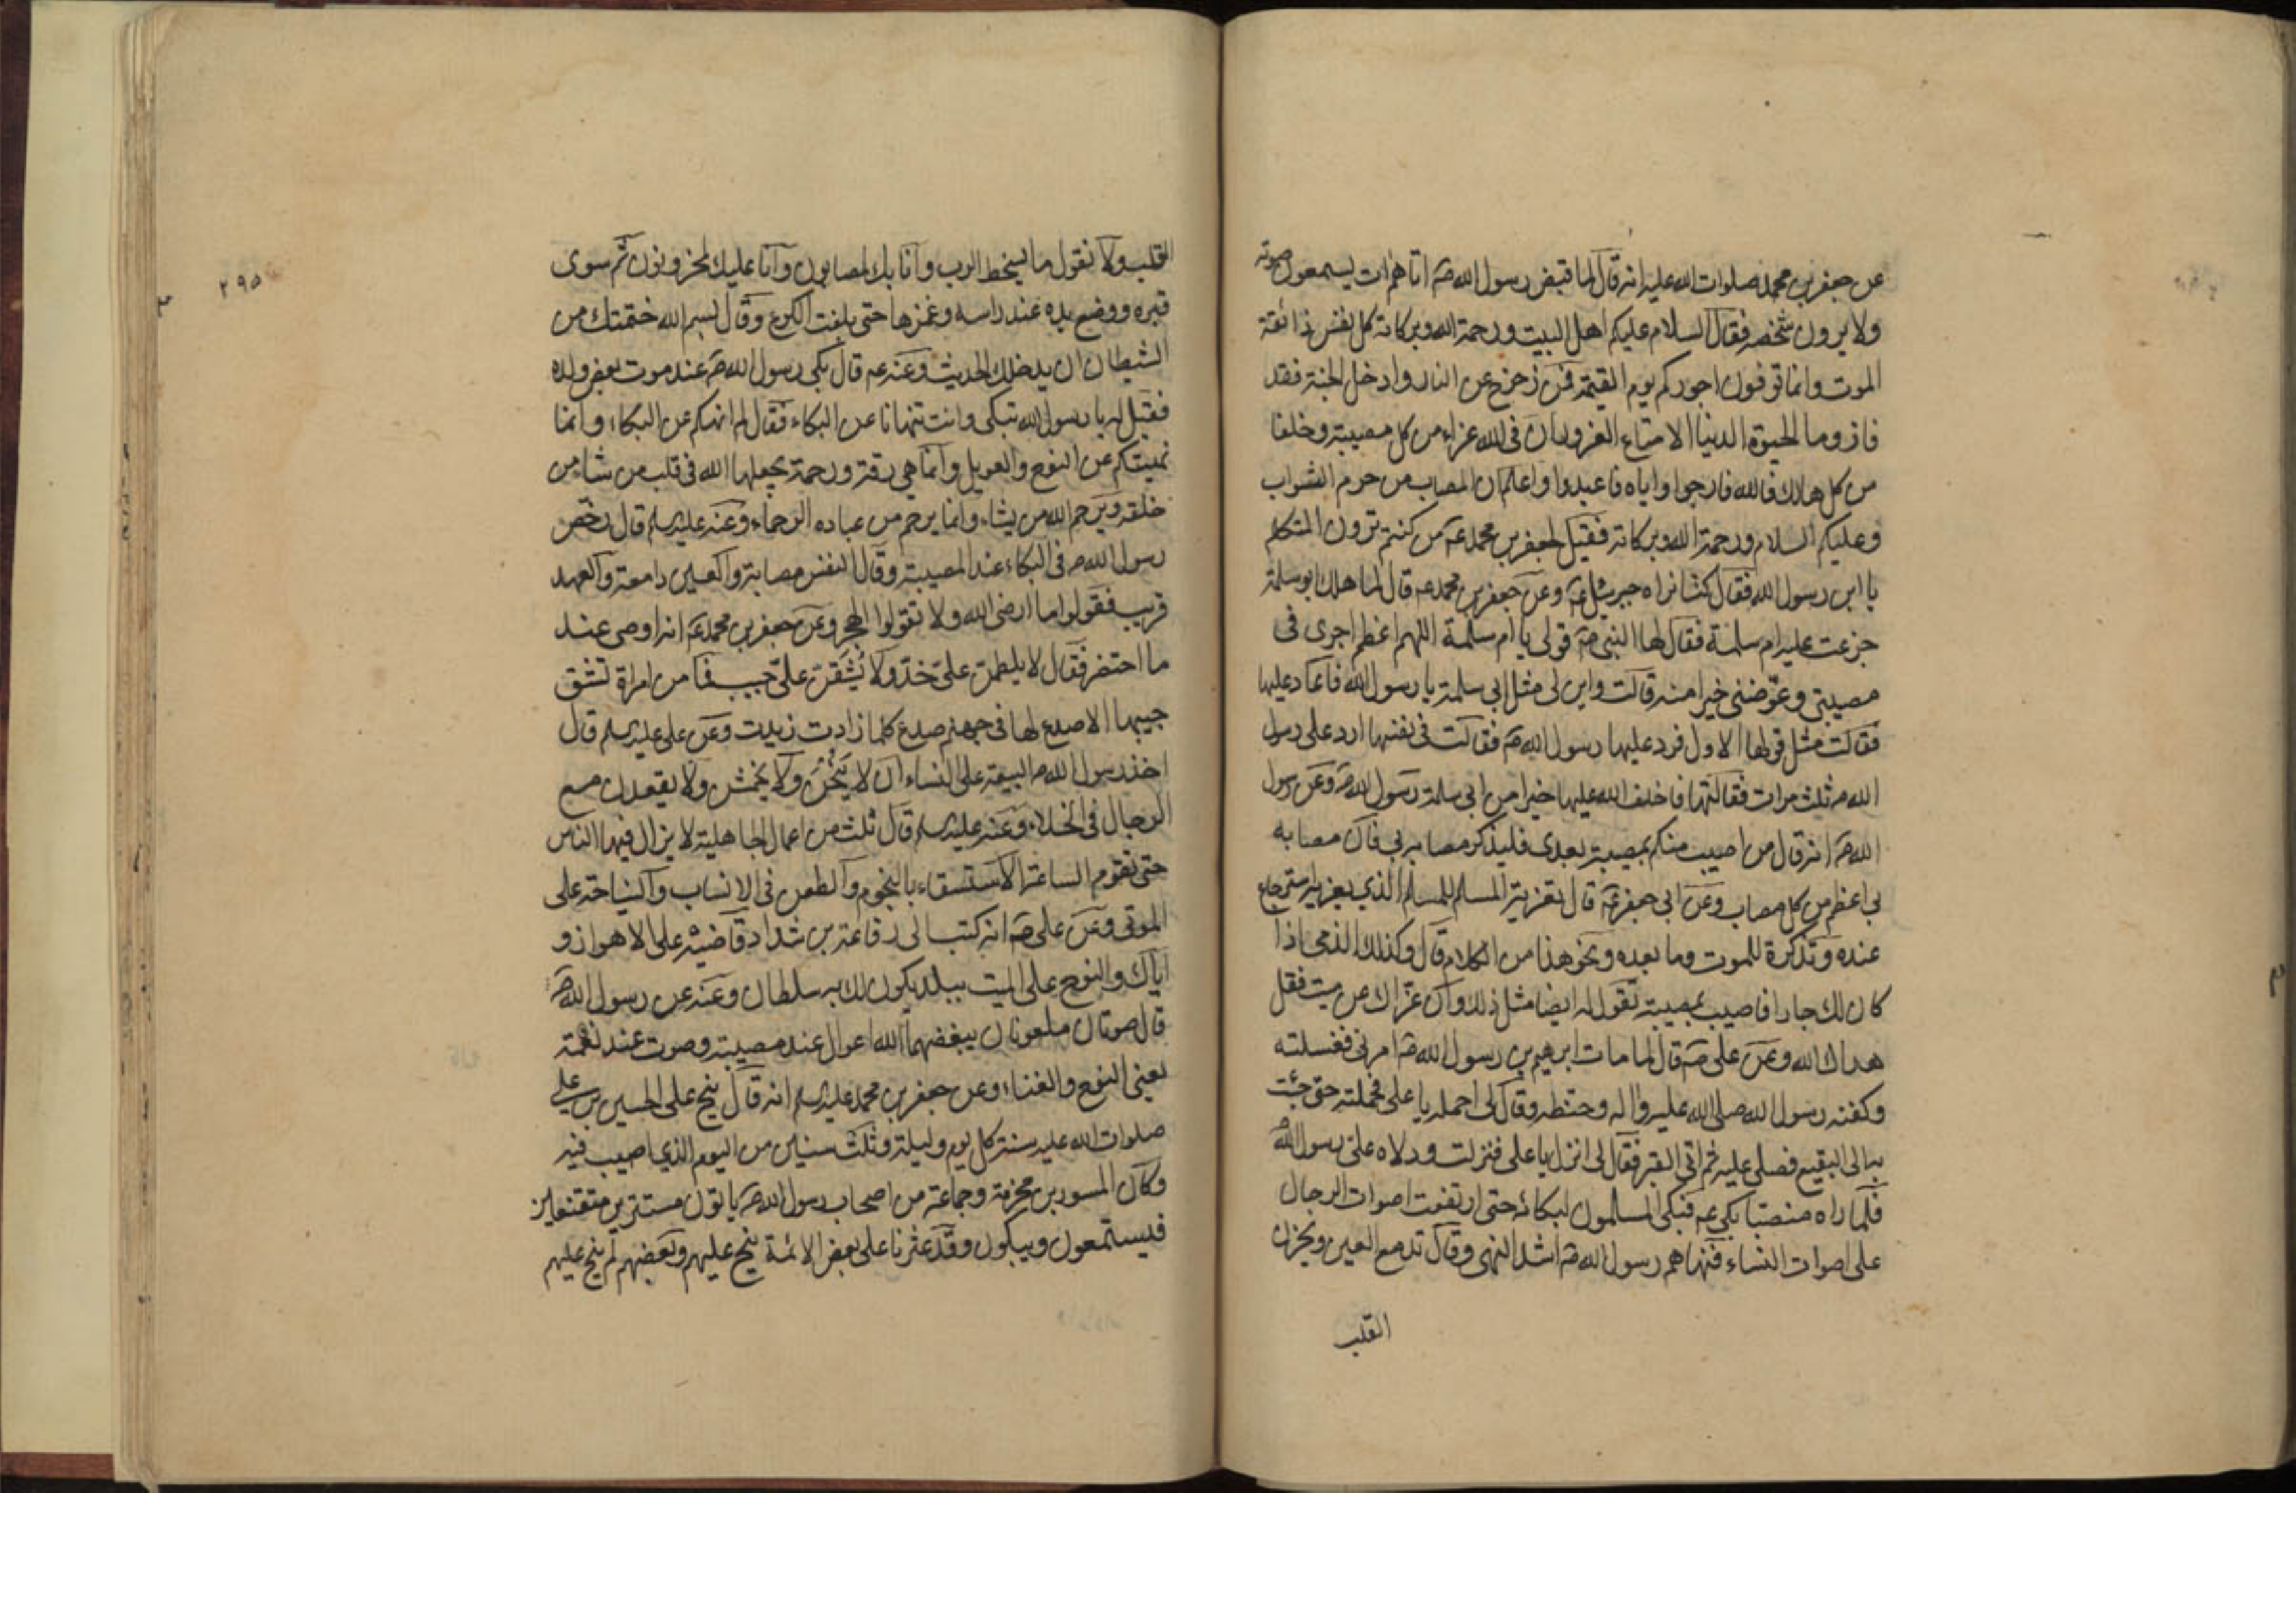 عن جعفر بن محمد صلوات الله عليه انه قال لما قبض رسول الله صه اتاهم ات يسمعون صوته
ولا يرون شخصه فقال السلام عليكم اهل البيت ورحمة الله وبركاته كل نفس ذائقة
الموت وانما توفون اجوركم يوم القيمة فمن زحزح عن النار وادخل الجنة فقد
فاز وما الحيوة الدنيا الا متاع الغرور ان في الله عزاء من كل مصيبة وخلفا
من كل هالك فالله فارجوا واياه فاعبدوا واعلموا ان المصاب من حرم الثواب
وعليكم السلام ورحمة الله وبركاته فقيل لجعفر بن محمد عه من كنتم ترون المتكلم
يا ابن رسول الله فقال كنا نراه جبرئيل عه وعن جعفر بن محمد عه قال لما هلك ابو سلمة
جزعت عليه ام سلمة فقال لها النبي صه قولي يا ام سلمة اللهم اعظم اجري في
مصيبتي وعوضني خيرا منه قالت واين لي مثل ابي سلمة يا رسول الله فاعاد عليها
فقالت مثل قولها الاول فرد عليها رسول الله صه فقالت في نفسها ارد على رسول
الله صه ثلث مرات فقالتها فاخلف الله عليها خيرا من ابي سلمة رسول الله صه وعن رسول
الله صه انه قال من اصيب منكم بمصيبة بعدي فليذكر مصابه بي فان مصابه
بي اعظم من كل مصاب وعن ابي جعفر عه قال تعزية المسلم للمسلم الذي يعزيه استرجاع
عنده وتذكرة للموت وما بعده ونحو هذا من الكلام قال وكذلك الذمي اذا
كان لك جارا فاصيب بمصيبة تقول له ايضا مثل ذلك وان عزاك عن ميت فقل
هداك الله وعن علي صه قال لما مات ابرهيم بن رسول الله صه امرني فغسلته
وكفنه رسول الله صلى الله عليه واله وحنطه وقال لي احمله يا علي فحملته حتى جئت
به الى البقيع فصلى عليه ثم اتى القبر فقال لي انزل يا علي فنزلت ودلاه علي رسول الله صه
فلما راه منصبا بكى عه فبكى المسلمون لبكائه حتى ارتفعت اصوات الرجال
على اصوات النساء فنهاهم رسول الله صه اشد النهي وقال تدمع العين ويحزن
القلب
٢٩٥
القلب ولا نقول ما يسخط الرب وانا بك لمصابون وانا عليك لمحزونون ثم سوى
قبره ووضع يده عند راسه وغمزها حتى بلغت الكوع وقال بسم الله ختمتك من
الشيطان ان يدخلك الحديث وعنه عه قال بكى رسول الله صه عند موت بعض ولده
فقيل له يا رسول الله تبكي وانت تنهانا عن البكاء فقال لم انهكم عن البكاء وانما
نهيتكم عن النوح والعويل وانما هي رقة ورحمة يجعلها الله في قلب من شاء من
خلقه ويرحم الله من يشاء وانما يرحم من عباده الرحماء وعنه عليه السلم قال رخص
رسول الله صه في البكاء عند المصيبة وقال النفس مصابة والعين دامعة والعهد
قريب فقولوا ما ارضى الله ولا تقولوا الهجر وعن جعفر بن محمد عه انه اوصى عند
ما احتضر فقال لا يلطمن علي خد ولا يشقن علي جيب فما من امراة تشق
جيبها الا صدع لها في جهنم صدع كلما زادت زيدت وعن علي عليه السلم قال
اخذ رسول الله صه البيعة على النساء ان لا ينحن ولا يخمشن ولا يقعدن مع
الرجال في الخلاء وعنه عليه السلم قال ثلث من اعمال الجاهلية لا يزال فيها الناس
حتى تقوم الساعة الاستسقاء بالنجوم والطعن في الانساب والنياحة على
الموتى وعن علي صه انه كتب الى رفاعة بن شداد قاضيه على الاهواز و
اياك والنوح على الميت ببلد يكون لك به سلطان وعنه عن رسول الله صه
قال صوتان ملعونان يبغضهما الله اعوال عند مصيبة وصوت عند نغمة
يعني النوح والغناء وعن جعفر بن محمد عليه السلم انه قال نيح على الحسين بن علي
صلوات الله عليه سنة كل يوم وليلة وثلث سنين من اليوم الذي اصيب فيه
وكان المسور بن مخرمة وجماعة من اصحاب رسول الله صه ياتون مستترين متقنعين
فيستمعون ويبكون وقد عثرنا على بعض الائمة نيح عليهم وبعضهم لم ينح عليهم